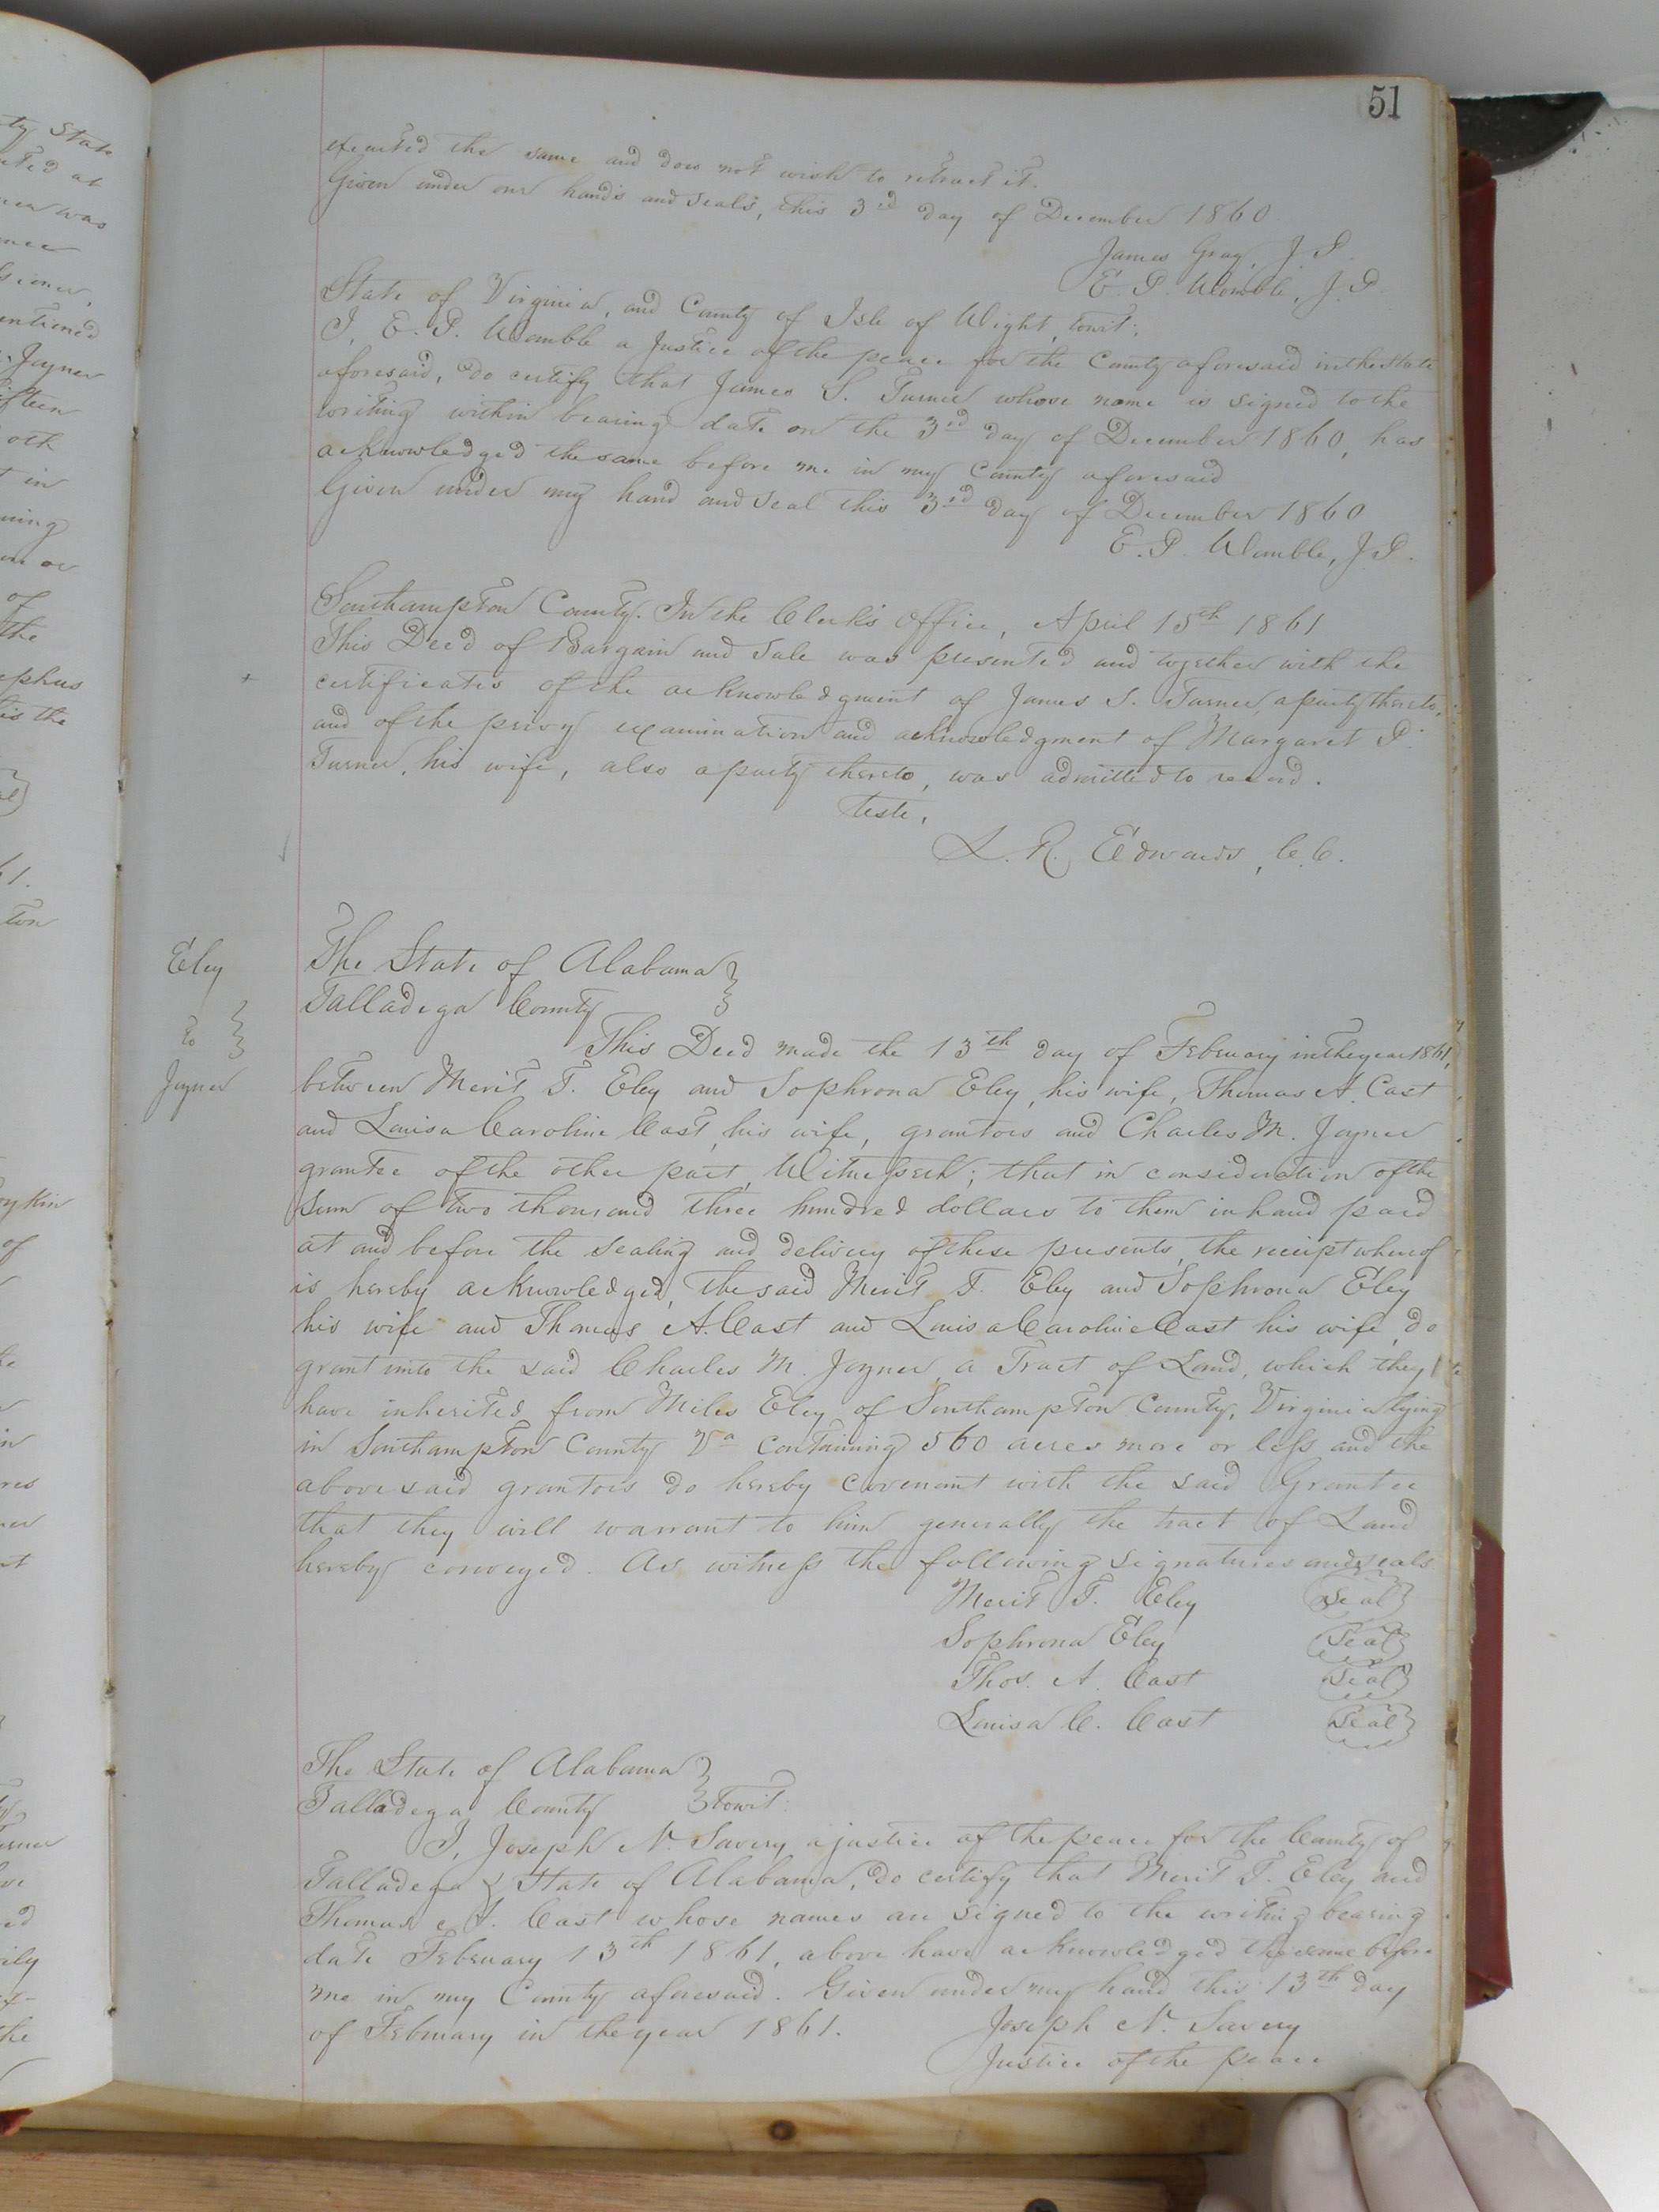 51
executed the same and does not wish to retract it.
Given under our hands and seals, this 3rd day of December 1860
James Gray, J. P.
E. P. Womble, J. P.
State of Virginia, and County of Isle of Wight, towit:
I, E. P. Womble a Justice of the peace for the County aforesaid in the State
aforesaid, do certify that James S. Turner whose name is signed to the
writing within bearing date on the 3rd day of December 1860, has
acknowledged the same before me in my County aforesaid
Given under my hand and seal this 3rd day of December 1860
E. P. Womble, J. P.
Southampton County. In the Clerk's Office, April 15th 1861
This Deed of Bargain and Sale was presented and together with the
certificates of the acknowledgment of James S. Turner, a party thereto,
and of the privy examination and acknowledgment of Margaret P.
Turner, his wife, also a party thereto, was admitted to record.
Teste,
L. R. Edwards, C. C.
Eley
to
Joyner
The State of Alabama
Talladega County
This Deed made the 13th day of February in the year 1861,
between Merit T. Eley and Sophrona Eley, his wife, Thomas A. Cast
and Louisa Caroline Cast, his wife, grantors and Charles M. Joyner
grantee of the other part, Witnesseth; that in consideration of the
sum of two thousand three hundred dollars to them in hand paid
at and before the sealing and delivery of these presents, the receipt whereof
is hereby acknowledged, the said Merit T. Eley and Sophrona Eley
his wife and Thomas A. Cast and Louisa Caroline Cast his wife, do
grant unto the said Charles M. Joyner, a Tract of Land, which they
have inherited from Miles Eley of Southampton County, Virginia lying
in Southampton County Va containing 560 acres more or less and the
above said grantors do hereby covenant with the said Grantee
that they will warrant to him generally the tract of Land
hereby conveyed. As witness the following signatures and seals
Merit T. Eley Seal
Sophrona Eley Seal
Thos. A. Cast Seal
Louisa C. Cast Seal
The State of Alabama
Talladega County towit:
I, Joseph N. Savery a justice of the peace for the County of
Talladega & State of Alabama, do certify that Merit T. Eley and
Thomas A. Cast whose names are signed to the writing bearing
date February 13th 1861, above have acknowledged the same before
me in my County aforesaid. Given under my hand this 13th day
of February in the year 1861. Joseph N. Savery
Justice of the peace